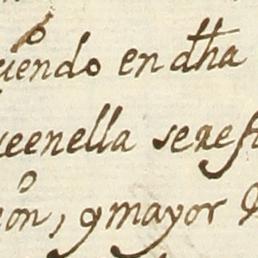 uendo en dha
eenella serefi
on, q mayor